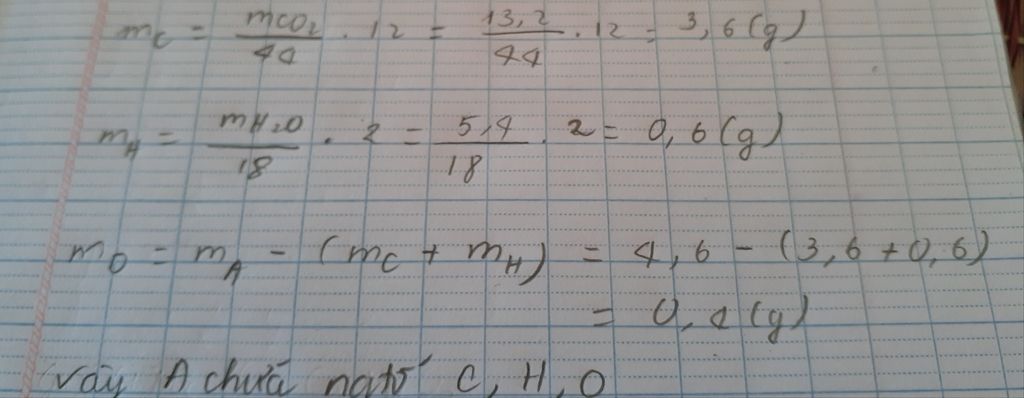 mC = mCO2/44 . 12 = 13,2/44 . 12 = 3,6 (g)
mH = mH2O/18 . 2 = 5,4/18 . 2 = 0,6 (g)
mO = mA - (mC + mH) = 4,6 - (3,6 + 0,6)
= 0,4 (g)
Vậy A chứa ngtố C, H, O